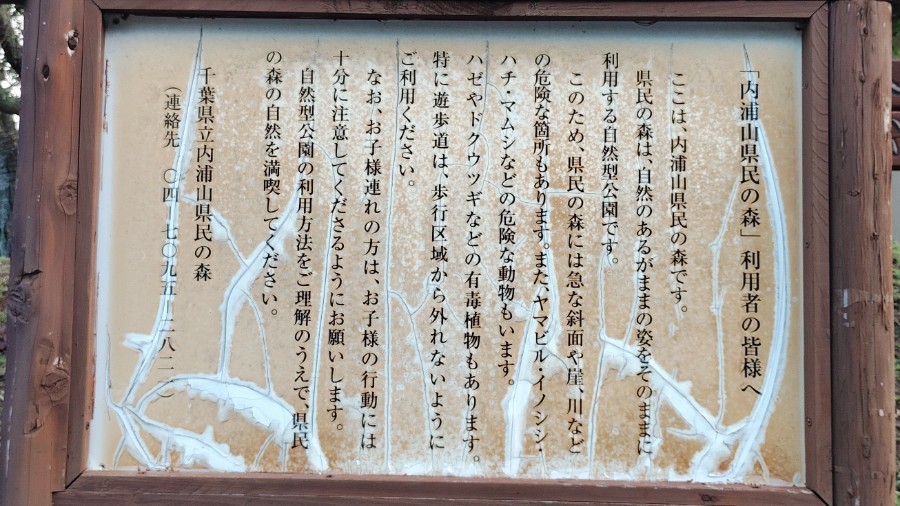 「内浦山県民の森」利用者の皆様へ
ここは、内浦山県民の森です。
県民の森は、自然のあるがままの姿をそのままに
利用する自然型公園です。
このため、県民の森には急な斜面や崖、川など
の危険な箇所もあります。また、ヤマビル・イノシシ・
ハチ・マムシなどの危険な動物もいます。
ハゼやドクウツギなどの有毒植物もあります。
特に遊歩道は、歩行区域から外れないように
ご利用ください。
なお、お子様連れの方は、お子様の行動には
十分に注意してくださるようにお願いします。
自然型公園の利用方法をご理解のうえで、県民
の森の自然を満喫してください。
千葉県立内浦山県民の森
(連絡先　〇四-七〇九五-二八二一)